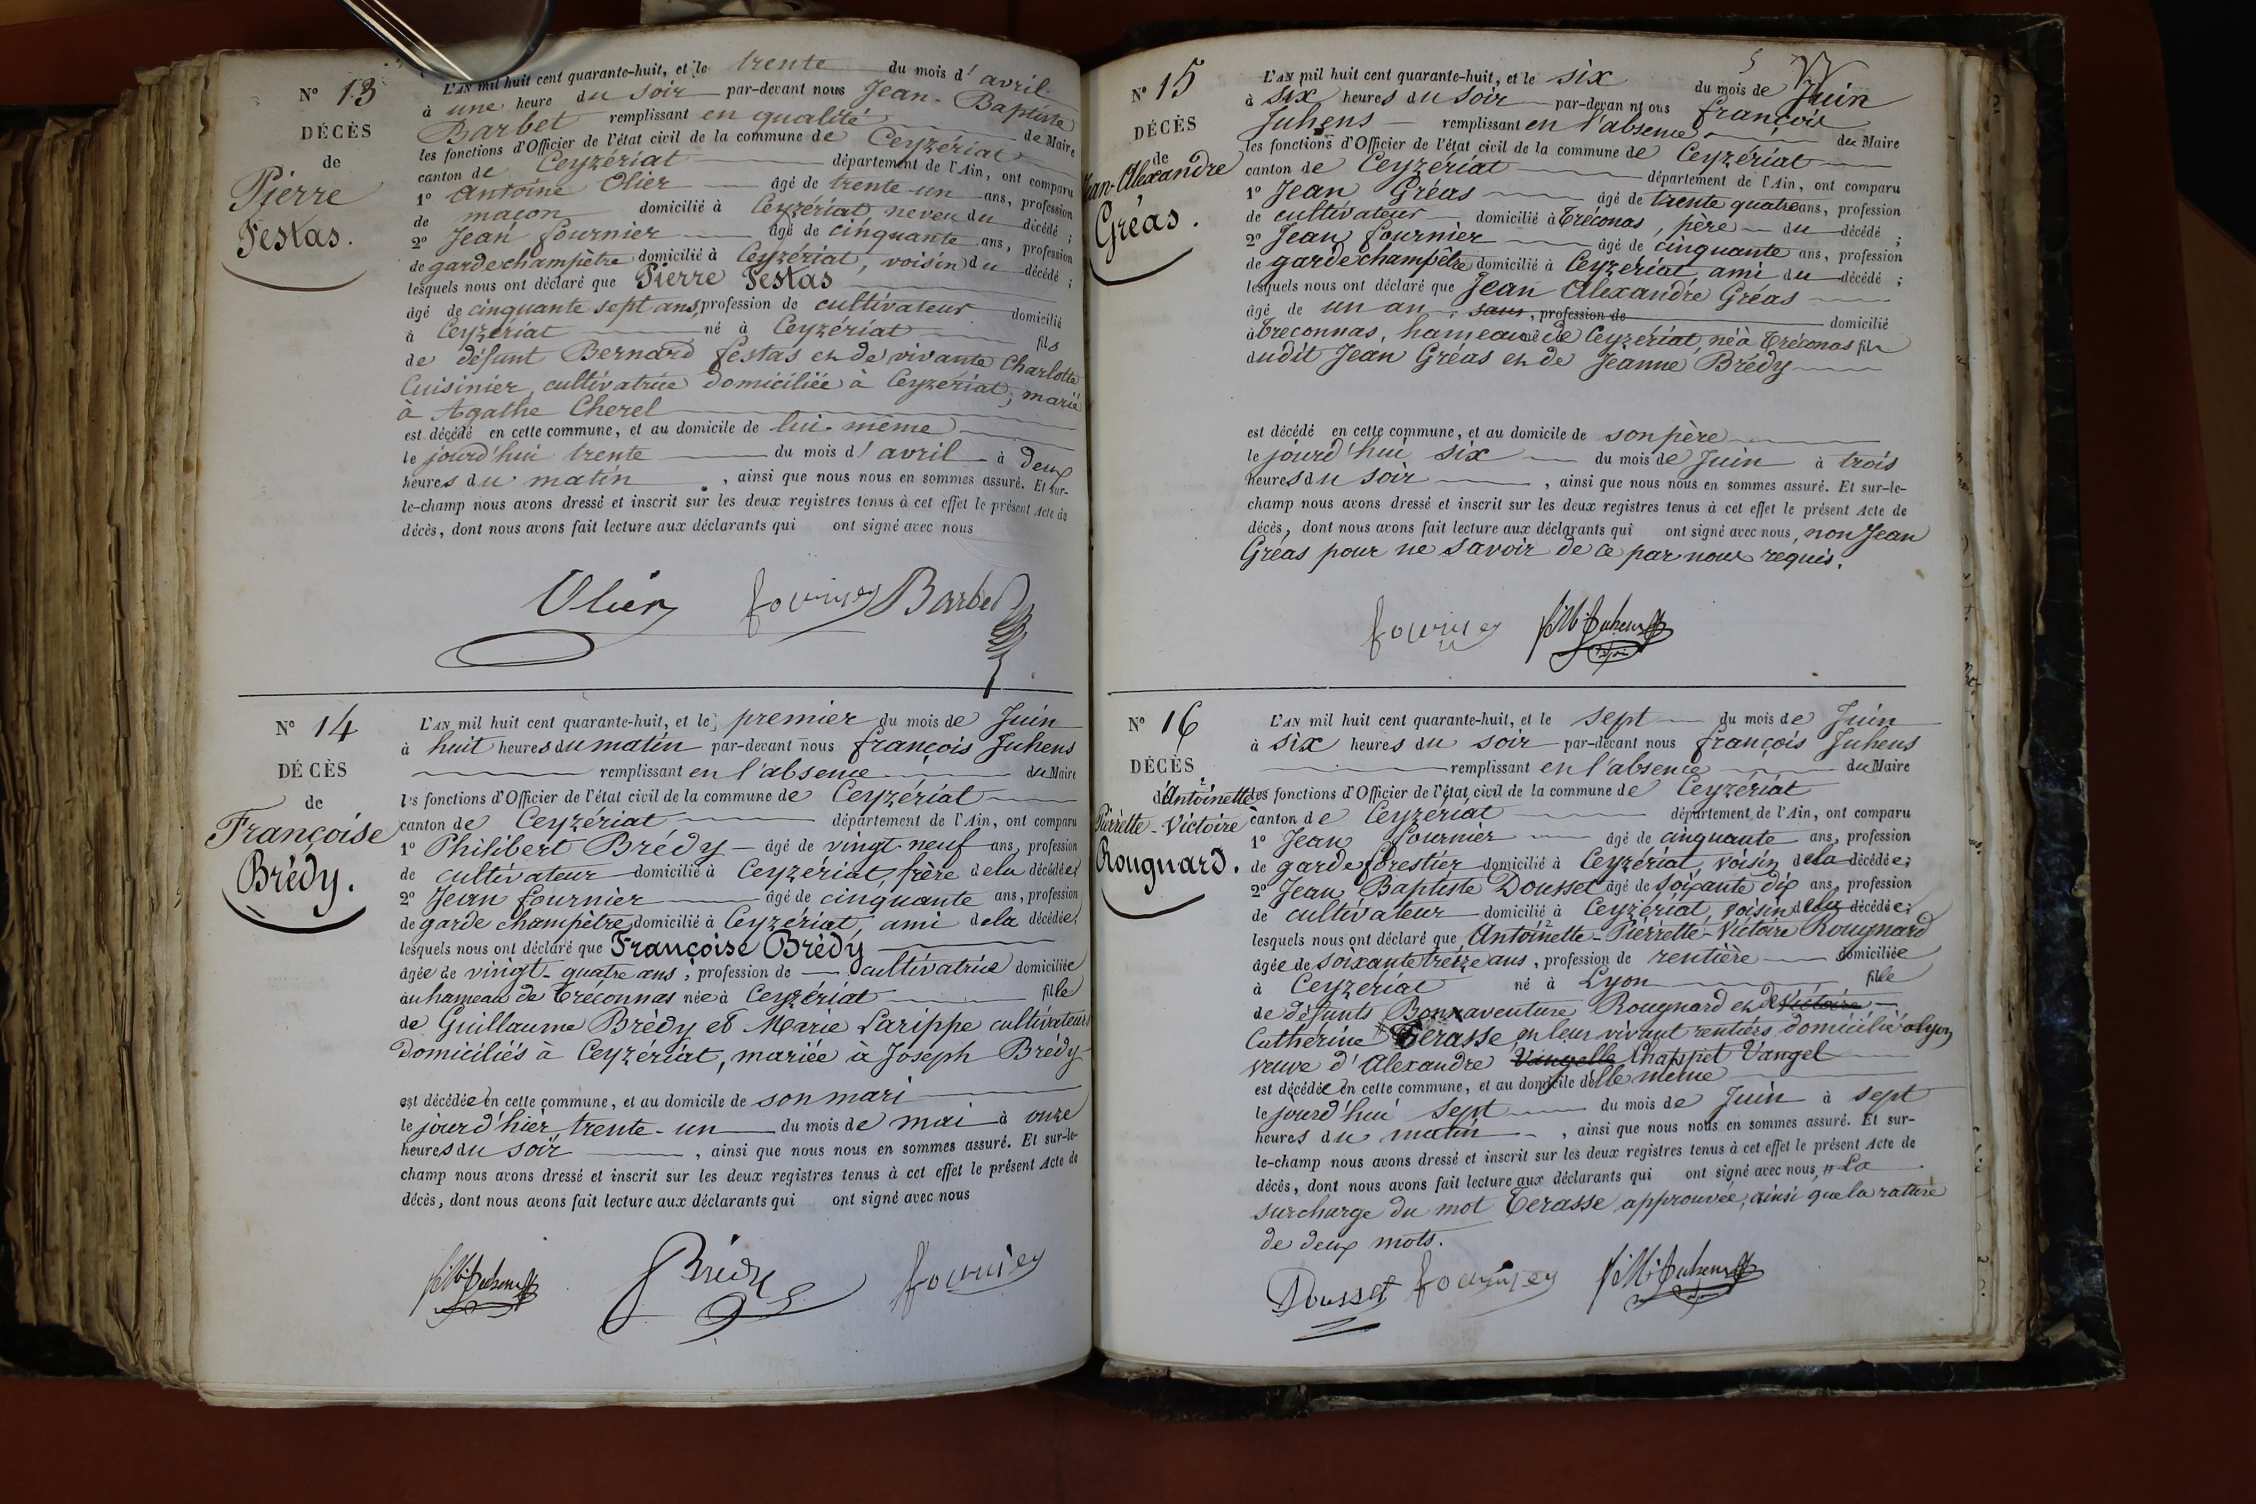 N° 13
DÉCÈS
de
Pierre
Festas.
L'AN mil huit cent quarante-huit, et le trente du mois d'avril
à une heure du soir par-devant nous Jean-Baptiste
Barbet remplissant en qualité de Maire
les fonctions d'Officier de l'état civil de la commune de Ceyzériat
canton de Ceyzériat département de l'Ain, ont comparu
1° Antoine Olier âgé de trente-un ans, profession
de maçon domicilié à Ceyzériat, neveu du décédé ;
2° Jean fournier âgé de cinquante ans, profession
de garde champêtre domicilié à Ceyzériat, voisin du décédé ;
lesquels nous ont déclaré que Pierre Festas
âgé de cinquante sept ans, profession de cultivateur domicilié
à Ceyzériat né à Ceyzériat fils
de défunt Bernard festas et de vivante Charlotte
Cuisinier, cultivatrice domiciliée à Ceyzériat, marié
à Agathe Cherel
est décédé en cette commune, et au domicile de lui-même
le jourd'hui trente du mois d'avril à deux
heures du matin, ainsi que nous nous en sommes assuré. Et sur-
le-champ nous avons dressé et inscrit sur les deux registres tenus à cet effet le présent Acte de
décès, dont nous avons fait lecture aux déclarants qui ont signé avec nous
Olier fournier Barbet
N° 14
DÉCÈS
de
Françoise
Brédy.
L'AN mil huit cent quarante-huit, et le premier du mois de Juin
à huit heures du matin par-devant nous françois Juhens
remplissant en l'absence du Maire
les fonctions d'Officier de l'état civil de la commune de Ceyzériat
canton de Ceyzériat département de l'Ain, ont comparu
1° Philibert Brédy âgé de vingt-neuf ans, profession
de cultivateur domicilié à Ceyzériat, frère de la décédée;
2° Jean fournier âgé de cinquante ans, profession
de garde champêtre domicilié à Ceyzériat, ami de la décédée;
lesquels nous ont déclaré que Françoise Brédy
âgée de vingt-quatre ans, profession de cultivatrice domiciliée
au hameau de Tréconnas née à Ceyzériat fille
de Guillaume Brédy et Marie Larippe cultivateurs
domiciliés à Ceyzériat, mariée à Joseph Brédy
est décédée en cette commune, et au domicile de son mari
le jour d'hier trente-un du mois de mai à onze
heures du soir, ainsi que nous nous en sommes assuré. Et sur-le-
champ nous avons dressé et inscrit sur les deux registres tenus à cet effet le présent Acte de
décès, dont nous avons fait lecture aux déclarants qui ont signé avec nous
Juhens Brédy fournier
5
N° 15
DÉCÈS
de
Jean-Alexandre
Gréas.
L'AN mil huit cent quarante-huit, et le six du mois de Juin
à six heures du soir par-devan nt ous françois
Juhens remplissant en l'absence du Maire
les fonctions d'Officier de l'état civil de la commune de Ceyzériat
canton de Ceyzériat département de l'Ain, ont comparu
1° Jean Gréas âgé de trente quatre ans, profession
de cultivateur domicilié à Tréconas, père du décédé ;
2° Jean fournier âgé de cinquante ans, profession
de garde champêtre domicilié à Ceyzériat, ami du décédé ;
lesquels nous ont déclaré que Jean Alexandre Gréas
âgé de un an, sans, profession de domicilié
à Treconnas, hameau de Ceyzériat, né à Tréconas fils
dudit Jean Gréas et de Jeanne Brédy
est décédé en cette commune, et au domicile de son père
le jourd'hui six du mois de Juin à trois
heures du soir, ainsi que nous nous en sommes assuré. Et sur-le-
champ nous avons dressé et inscrit sur les deux registres tenus à cet effet le présent Acte de
décès, dont nous avons fait lecture aux déclarants qui ont signé avec nous, non Jean
Gréas pour ne savoir de ce par nous requis.
fournier Juhens
N° 16
DÉCÈS
d'Antoinette
Pierrette-Victoire
Rougnard.
L'AN mil huit cent quarante-huit, et le sept du mois de Juin
à six heures du soir par-devant nous françois Juhens
remplissant en l'absence du Maire
les fonctions d'Officier de l'état civil de la commune de Ceyzériat
canton de Ceyzériat département de l'Ain, ont comparu
1° Jean fournier âgé de cinquante ans, profession
de garde forestier domicilié à Ceyzériat, voisin de la décédée;
2° Jean Baptiste Dousset âgé de soixante dix ans, profession
de cultivateur domicilié à Ceyzériat, voisin de la décédée;
lesquels nous ont déclaré que Antoinette-Pierrette-Victoire Rougnard
âgée de soixante treize ans, profession de rentière domiciliée
à Ceyzériat né à Lyon fille
de défunts Bonnaventure Rougnard et de Victoire
Catherine Terasse en leur vivant rentiers domicilié à Lyon
veuve d'Alexandre Vangelle Chappet Vangel
est décédée en cette commune, et au domicile d'elle même
le jourd'hui sept du mois de Juin à sept
heures du matin, ainsi que nous nous en sommes assuré. Et sur-
le-champ nous avons dressé et inscrit sur les deux registres tenus à cet effet le présent Acte de
décès, dont nous avons fait lecture aux déclarants qui ont signé avec nous, # La
surcharge du mot Terasse approuvée, ainsi que la rature
de deux mots.
Dousset fournier Juhens